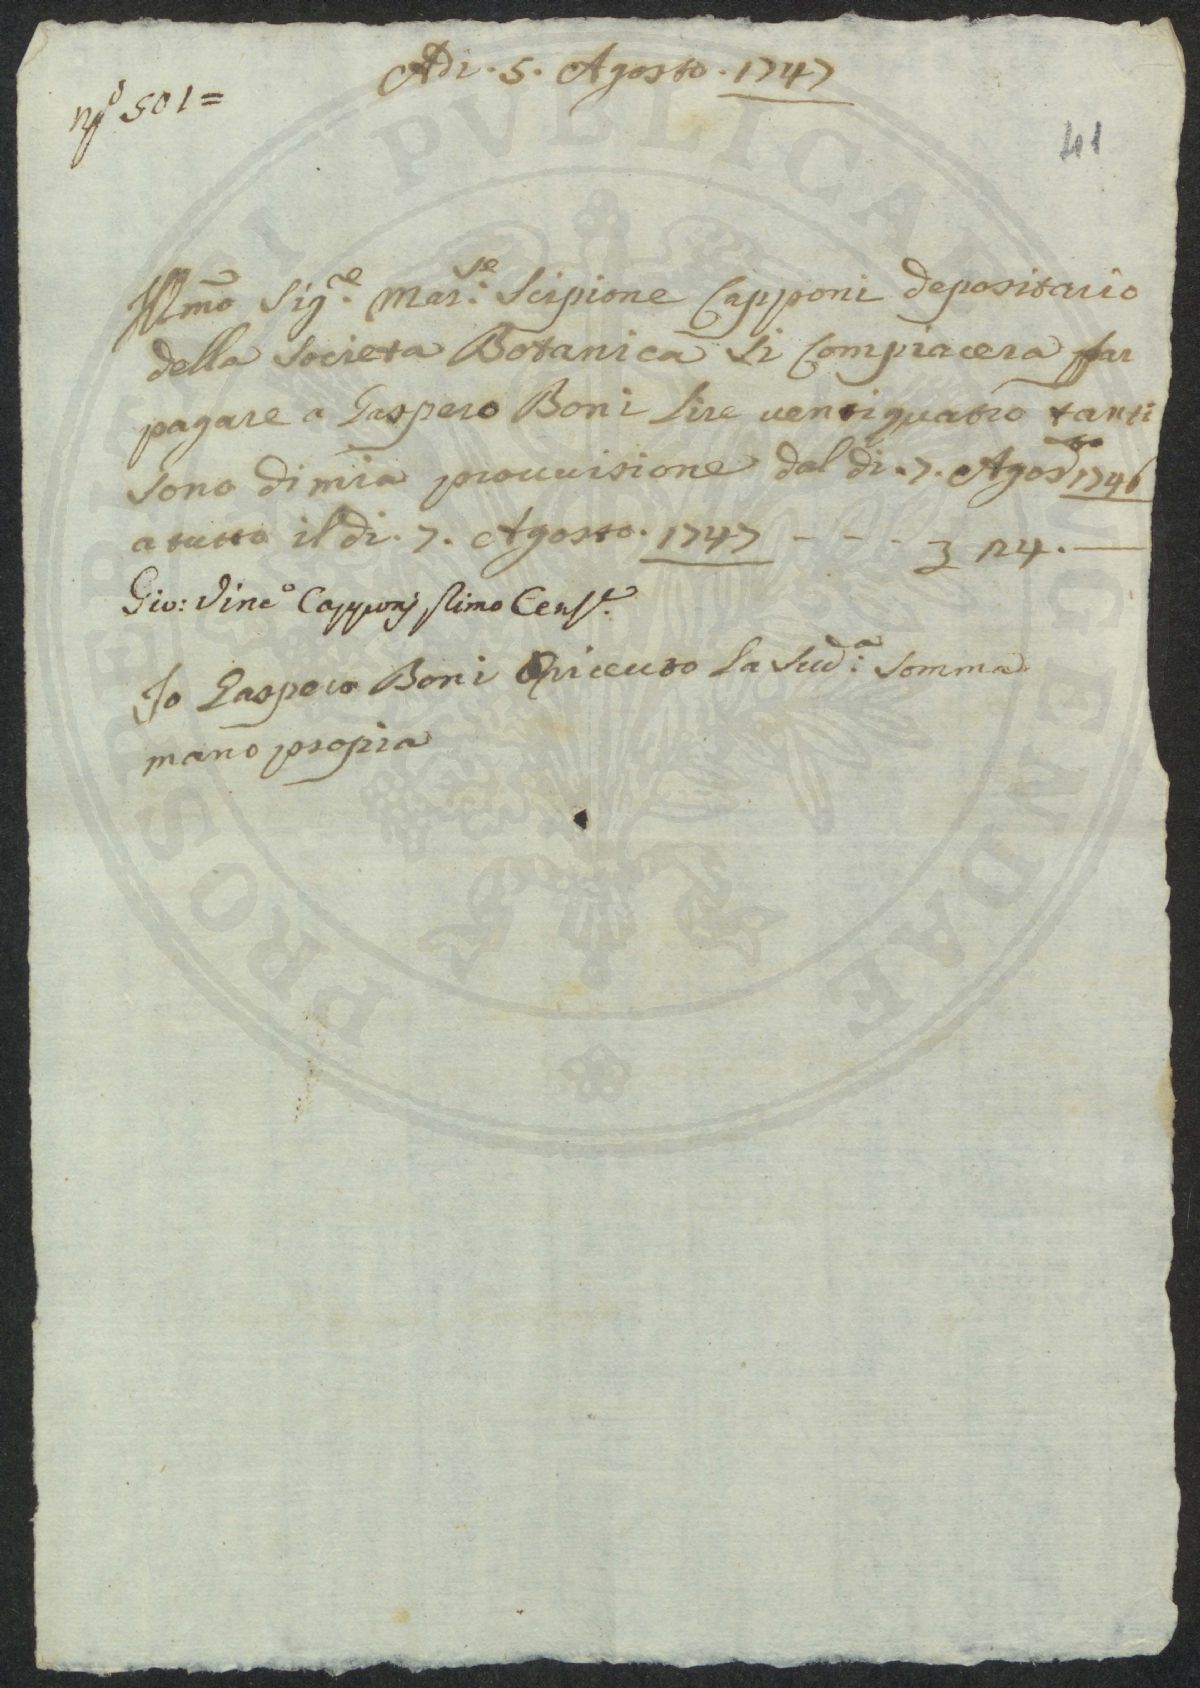 Adi. 5. Agosto. 1747
nº 501=
41
Illmo Sigre. Marse. Scipione Capponi depositario
della Societa Botanica Si Compiacera far
pagare a Gaspero Boni Lire uentiquatro tanti
sono di mia prouuisione dal di. 7. Agosto 1746
a tutto il di. 7. Agosto. 1747 - - - 24. —
Gio: Vinco Capponj
Io Gaspero Boni riceuto La Suda: Somma
mano propia
PROSPERITATI PVBLICAE AVGENDAE